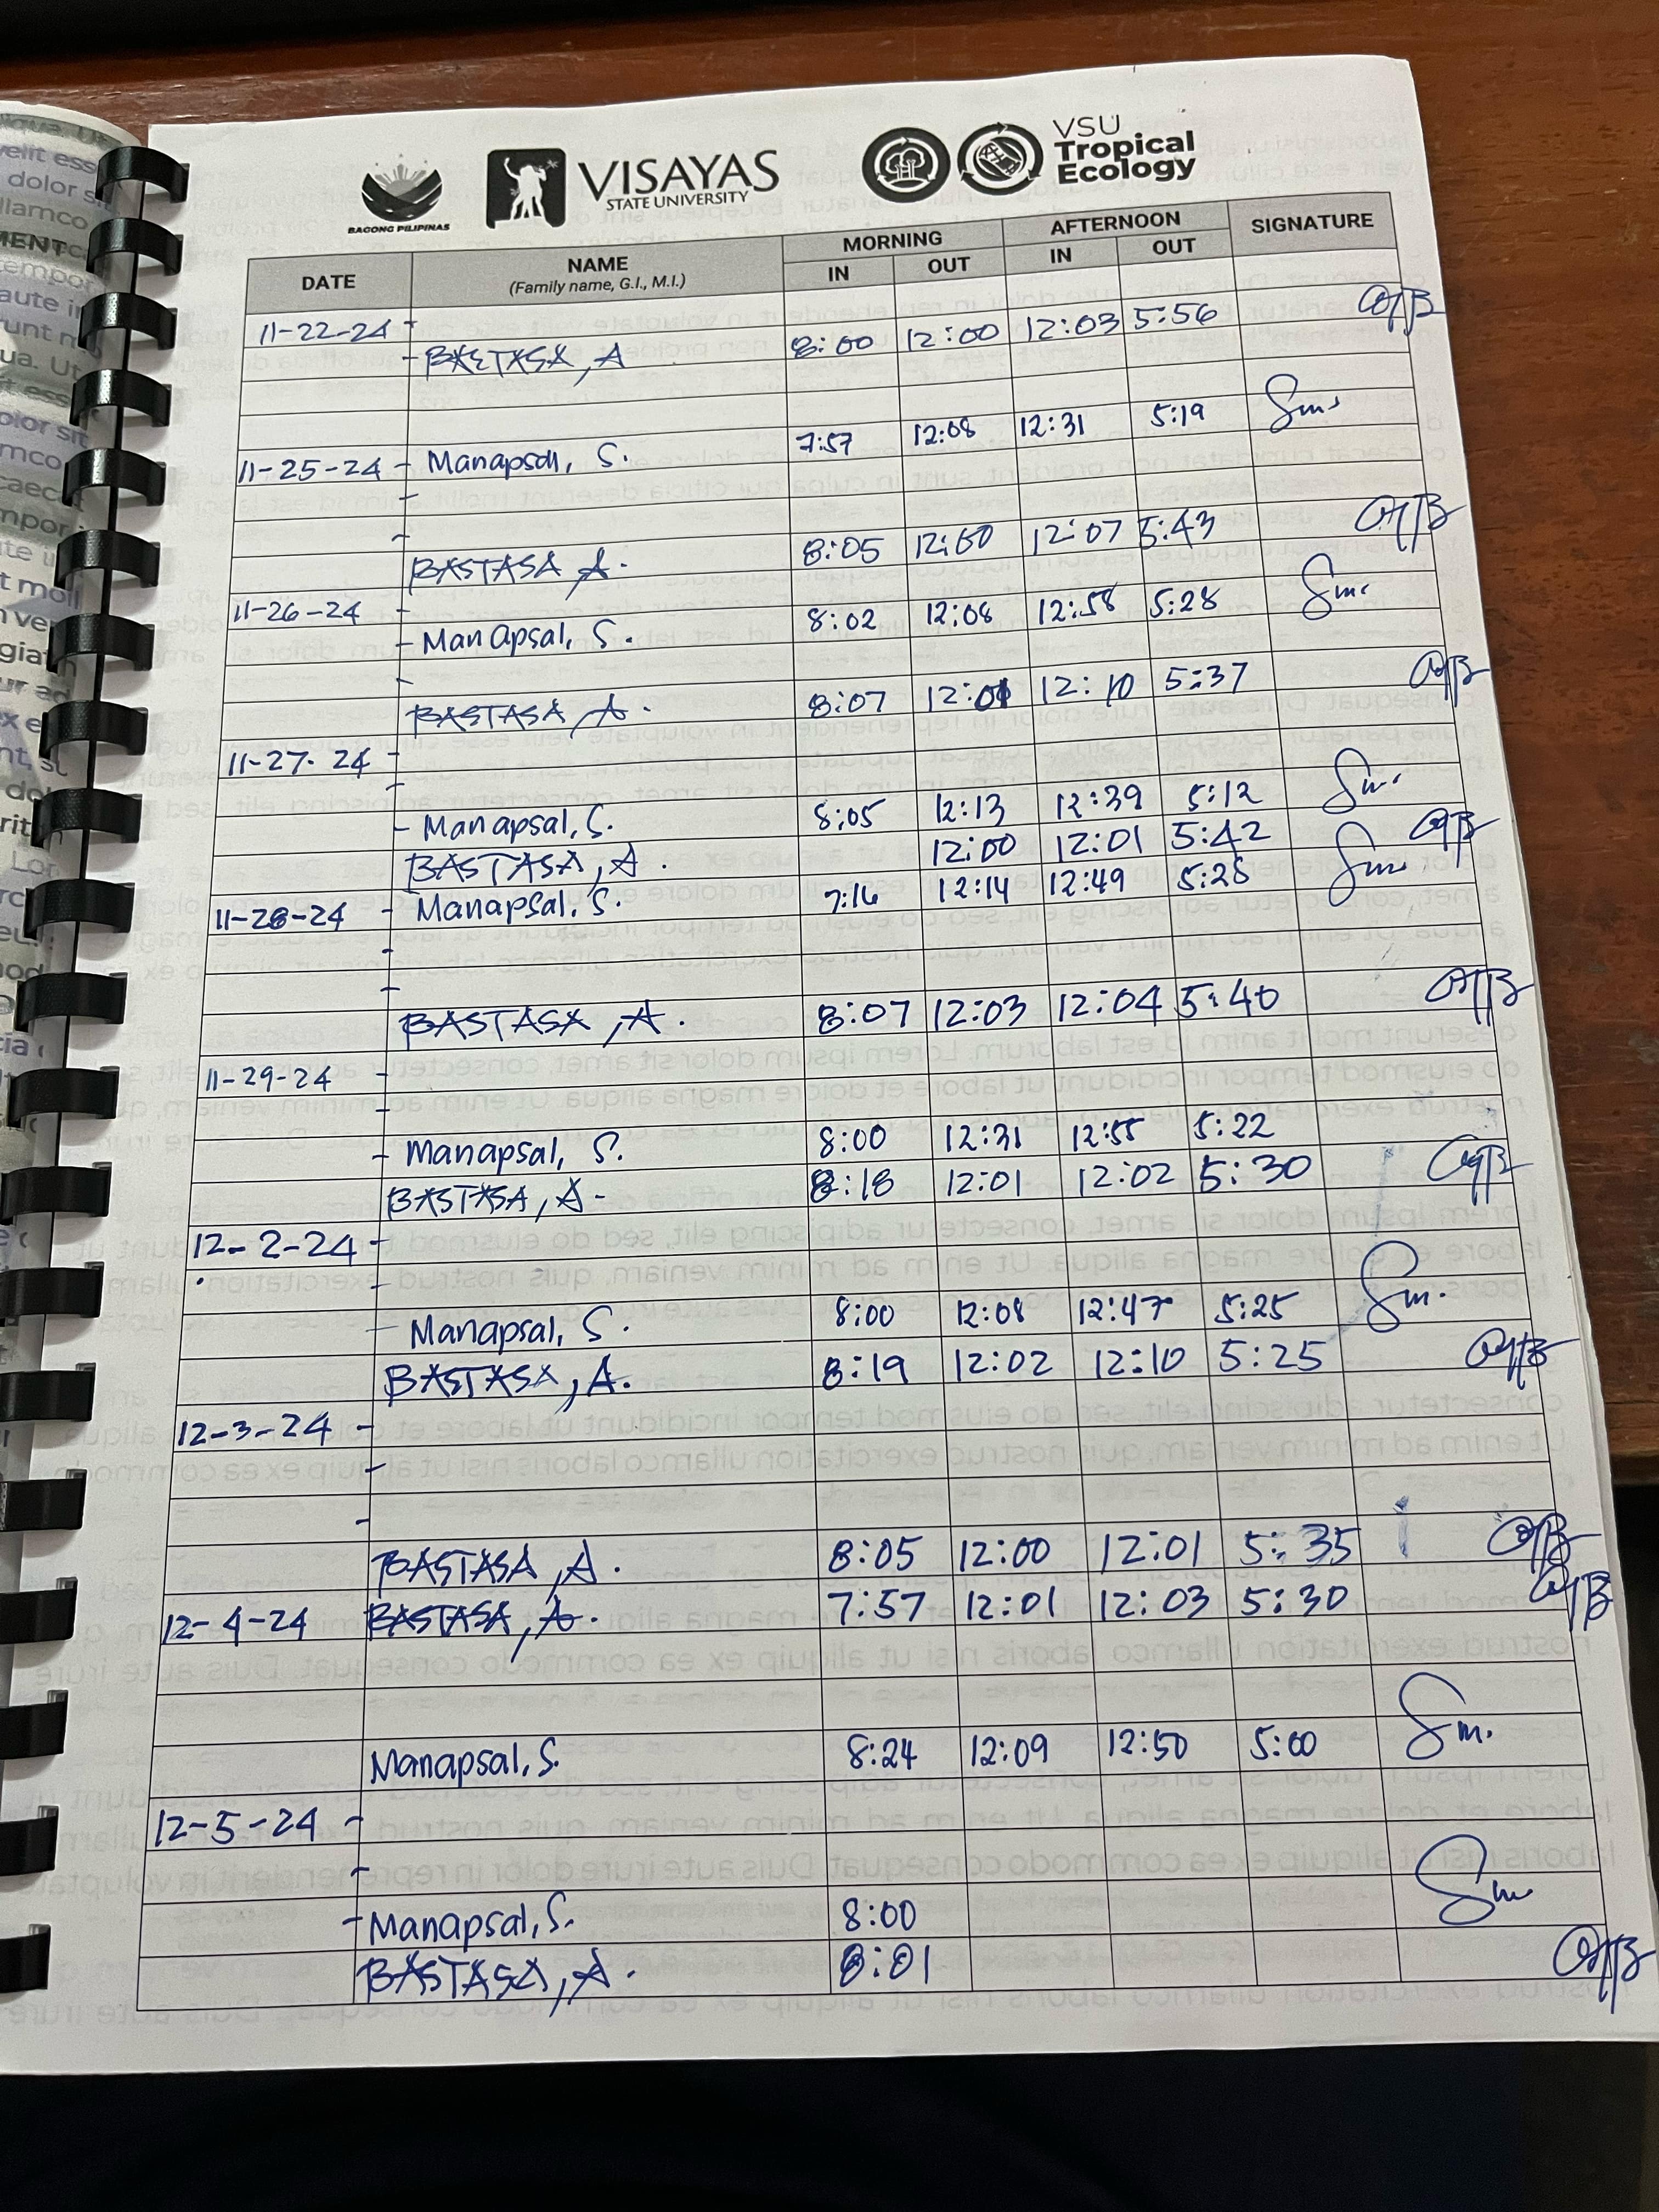 BAGONG PILIPINAS
VISAYAS
STATE UNIVERSITY
VSU
Tropical
Ecology
DATE NAME MORNING AFTERNOON SIGNATURE
(Family name, G.I., M.I.) IN OUT IN OUT
11-22-24 -
- BASTASA, A 8:00 12:00 12:03 5:56
11-25-24 - Manapsal, S. 7:57 12:08 12:31 5:19 Sm.
-
-
BASTASA, A. 8:05 12:00 12:07 5:43
11-26-24 -
- Manapsal, S. 8:02 12:08 12:58 5:28 Sm.
-
BASTASA, A. 8:07 12:01 12:10 5:37
11-27-24 -
-
- Manapsal, S. 8:05 12:13 12:39 5:12 Sm.
BASTASA, A. 12:00 12:01 5:42
11-28-24 - Manapsal, S. 7:16 12:14 12:49 5:28 Sm.
-
-
BASTASA, A. 8:07 12:03 12:04 5:40
11-29-24 -
-
- Manapsal, S. 8:00 12:31 12:55 5:22
BASTASA, A- 8:18 12:01 12:02 5:30
12-2-24 -
-
- Manapsal, S. 8:00 12:08 12:47 5:25 Sm.
BASTASA, A. 8:19 12:02 12:10 5:25
12-3-24 -
-
-
BASTASA, A. 8:05 12:00 12:01 5:35
12-4-24 BASTASA, A. 7:57 12:01 12:03 5:30
Manapsal, S. 8:24 12:09 12:50 5:00 Sm.
12-5-24 -
-
- Manapsal, S. 8:00 Sm
BASTASA, A. 8:01